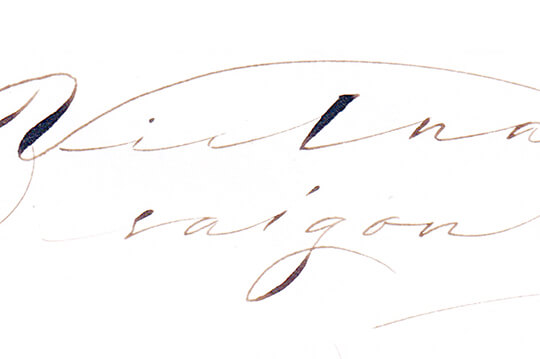 Vietna
saigon